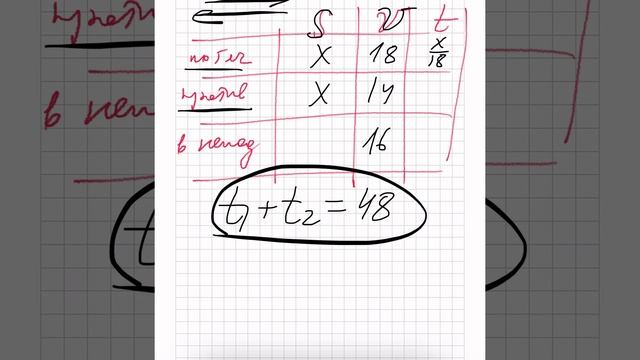 S V t
по теч X 18 x/18
против X 14
в непод 16
t₁ + t₂ = 48